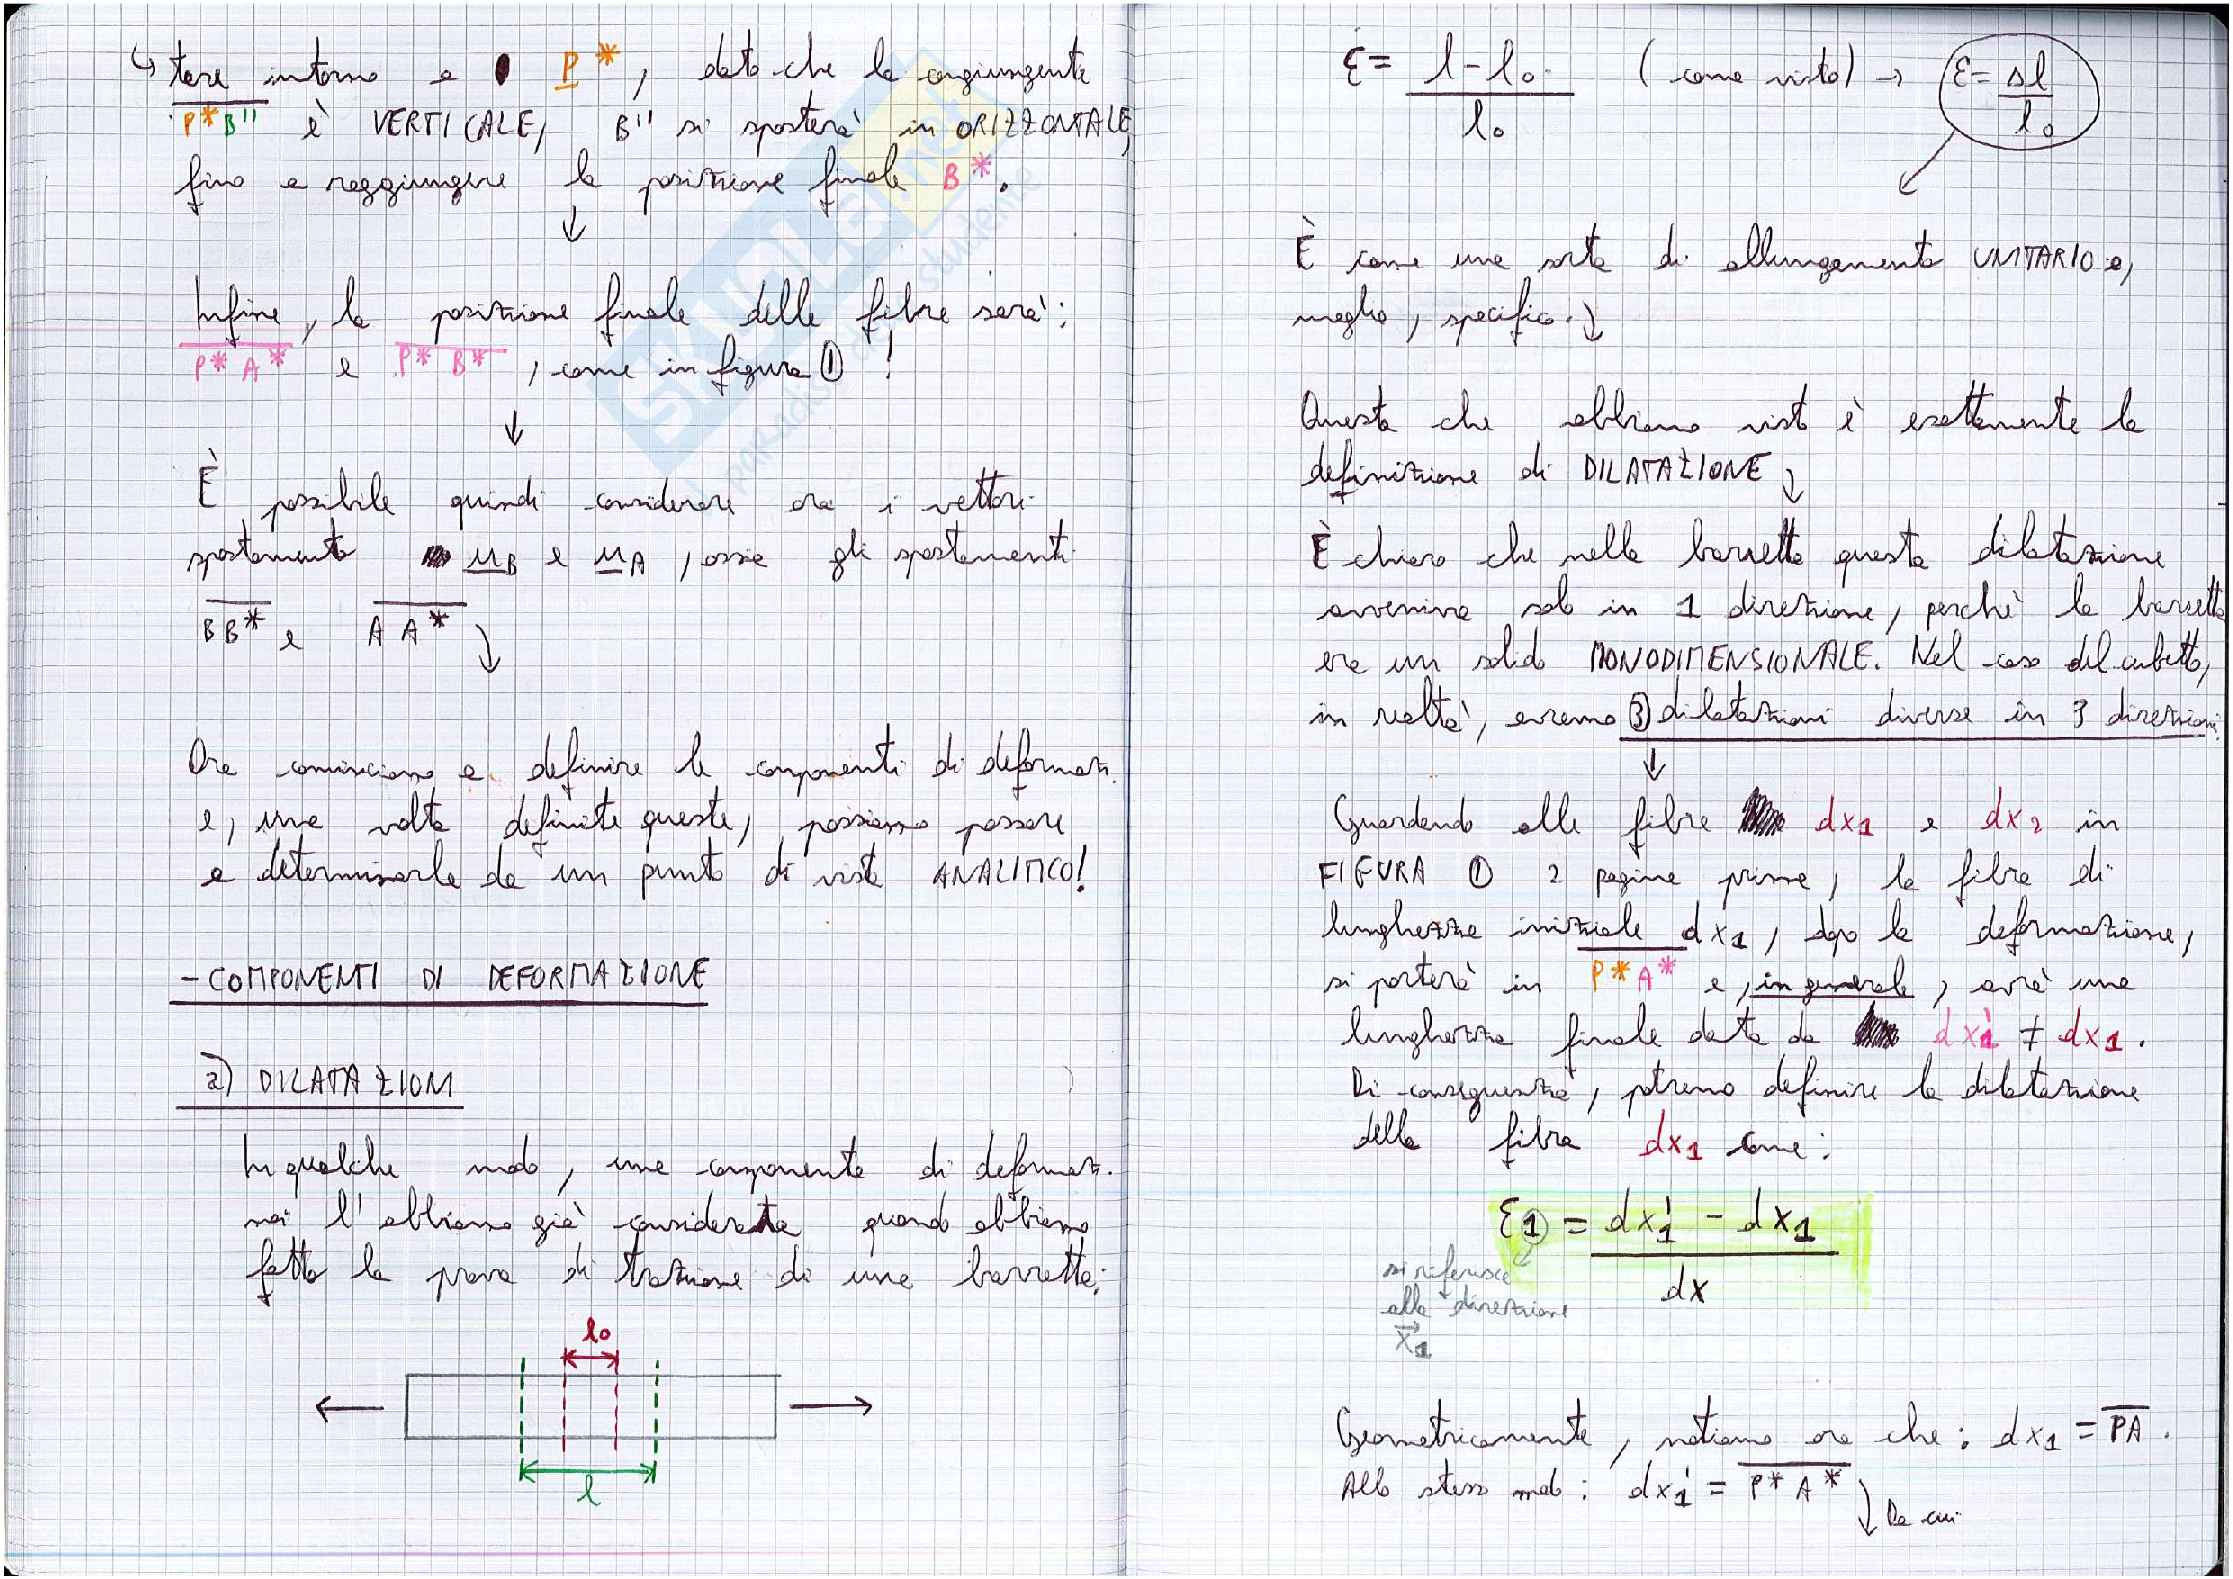 ↳ tare intorno a P*, dato che la congiungente
P*B'' è VERTICALE, B'' si sposterà in ORIZZONTALE,
fino a raggiungere la posizione finale B*.
↓
Infine, la posizione finale delle fibre sarà:
P*A* e P*B*, come in figura ① !
↓
È possibile quindi considerare ora i vettori
spostamento u_B e u_A, ossia gli spostamenti
BB* e AA* ↓
Ora cominciamo a definire le componenti di deformaz.
e, una volta definite queste, possiamo passare
a determinarle da un punto di vista ANALITICO!
- COMPONENTI DI DEFORMAZIONE
a) DILATAZIONI
In qualche modo, una componente di deformaz.
noi l'abbiamo già considerata quando abbiamo
fatto la prova di trazione di una barretta:
l₀
l
ε = l - l₀ / l₀ (come visto) → ε = Δl / l₀
È come una sorta di allungamento UNITARIO o,
meglio, specifico. ↓
Questa che abbiamo visto è esattamente la
definizione di DILATAZIONE ↓
È chiaro che nella barretta questa dilatazione
avveniva solo in 1 direzione, perchè la barretta
era un solido MONODIMENSIONALE. Nel caso del cubetto,
in realtà, avremo ③ dilatazioni diverse in 3 direzioni.
↓
Guardando alle fibre dx₁ e dx₂ in
FIGURA ① 2 pagine prima, la fibra di
lunghezza iniziale dx₁, dopo la deformazione,
si porterà in P*A* e, in generale, avrà una
lunghezza finale data da dx₁' ≠ dx₁.
Di conseguenza, potremo definire la dilatazione
della fibra dx₁ come:
ε₁ = dx₁' - dx₁ / dx
si riferisce
alla direzione
x₁
Geometricamente, notiamo ora che: dx₁ = PA.
Allo stesso modo: dx₁' = P*A* ↓ Da cui
SKUOLA.net